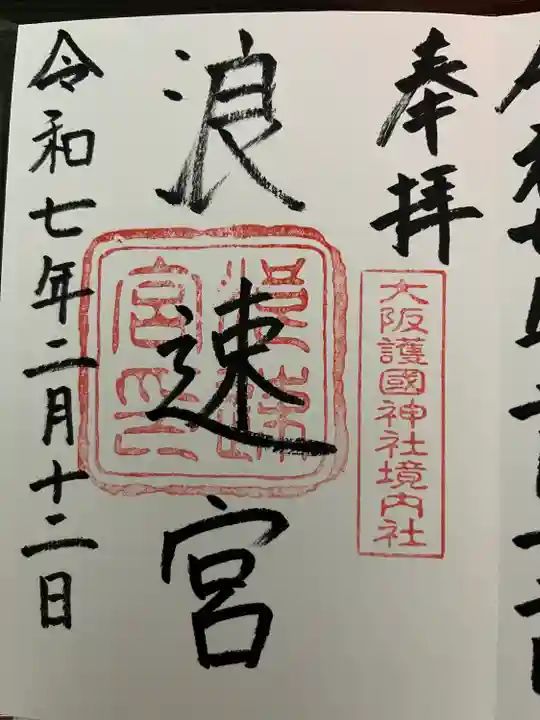 奉拝
大阪護國神社境内社
浪速宮
令和七年二月十二日